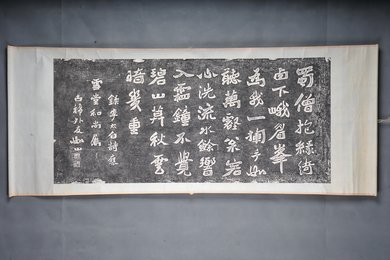 蜀僧抱綠綺
西下峨眉峯
為我一揮手如
聽萬壑松客
心洗流水餘響
入霜鐘不覺
碧山暮秋雲
暗幾重
錄李太白詩應
雪堂和尚屬